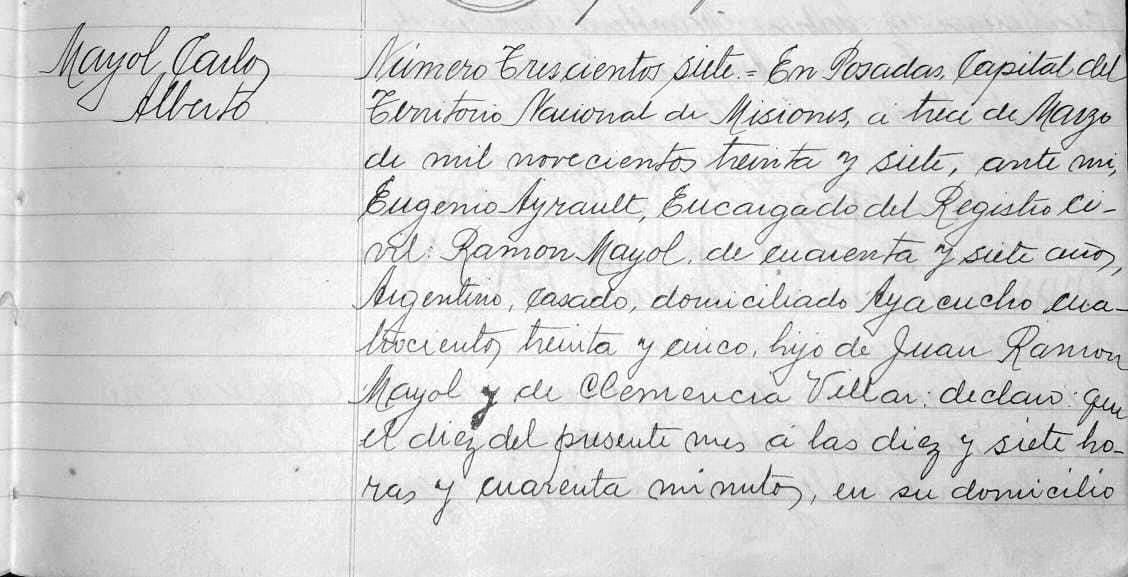 Mayol Carlos
Alberto
Número Trescientos siete.= En Posadas, Capital del
Territorio Nacional de Misiones, á trece de Marzo
de mil novecientos treinta y siete, ante mi,
Eugenio Ayrault, Encargado del Registro Ci-
vil: Ramon Mayol, de cuarenta y siete años,
Argentino, casado, domiciliado Ayacucho cua-
trocientos treinta y cinco, hijo de Juan Ramon
Mayol y de Clemencia Villar: declaro: que
el diez del presente mes á las diez y siete ho-
ras y cuarenta minutos, en su domicilio